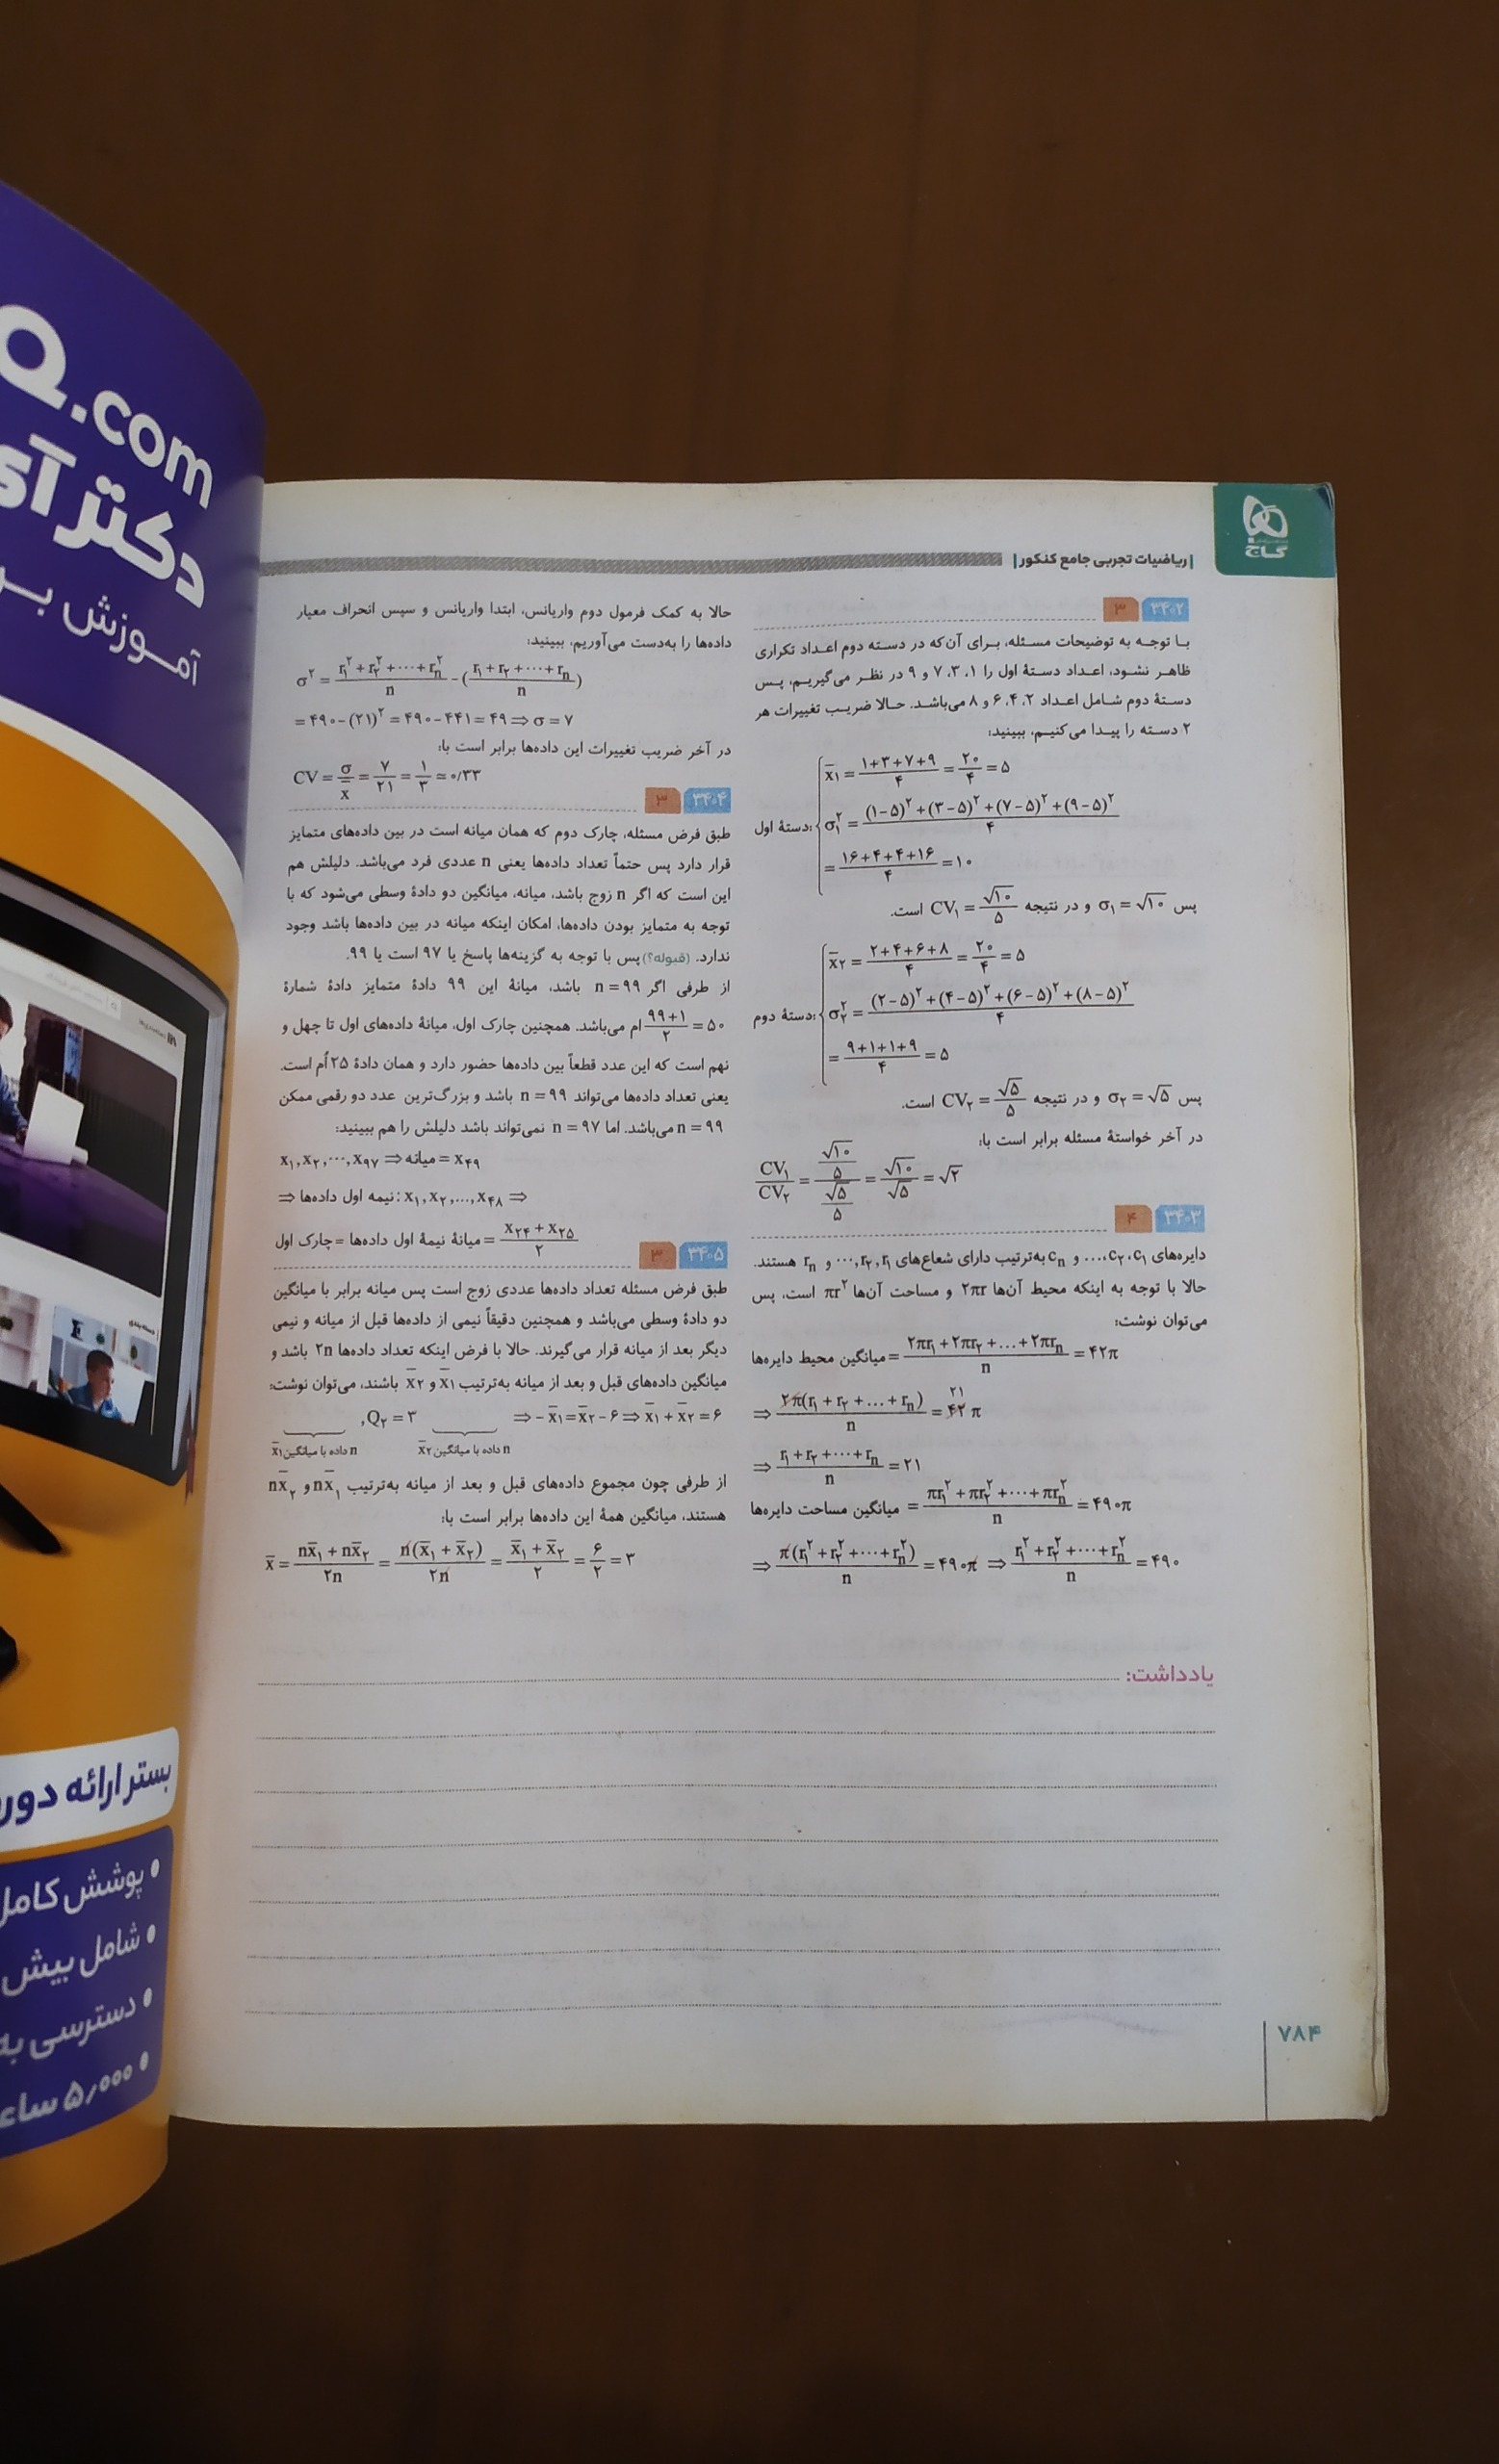 Q.com
دکتر آی
آمـوزش بـر
بستر ارائه دوره
• پوشش کامل
• شامل بیش
• دسترسی به
• ۵٫۰۰۰ ساعـ
گـاج
|ریاضیات تجربی جامع کنکور|
۳۴۰۲ ۳
بـا توجـه به توضیحات مسـئله، بـرای آن‌که در دسـته دوم اعـداد تکراری
ظاهـر نشـود، اعـداد دسـتهٔ اول را ۱، ۳، ۷ و ۹ در نظـر می‌گیریـم، پـس
دسـتهٔ دوم شـامل اعـداد ۲، ۴، ۶ و ۸ می‌باشـد. حـالا ضریـب تغییرات هر
۲ دسـته را پیـدا می‌کنیـم، ببینید:
دستهٔ اول: x̄₁ = (۱+۳+۷+۹)/۴ = ۲۰/۴ = ۵
σ₁² = ((۱−۵)² + (۳−۵)² + (۷−۵)² + (۹−۵)²)/۴
= (۱۶+۴+۴+۱۶)/۴ = ۱۰
پس σ₁ = √۱۰ و در نتیجه CV₁ = √۱۰/۵ است.
دستهٔ دوم: x̄₂ = (۲+۴+۶+۸)/۴ = ۲۰/۴ = ۵
σ₂² = ((۲−۵)² + (۴−۵)² + (۶−۵)² + (۸−۵)²)/۴
= (۹+۱+۱+۹)/۴ = ۵
پس σ₂ = √۵ و در نتیجه CV₂ = √۵/۵ است.
در آخر خواستهٔ مسئله برابر است با:
CV₁/CV₂ = (√۱۰/۵)/(√۵/۵) = √۱۰/√۵ = √۲
۳۴۰۳ ۴
دایره‌های c₁، c₂، … و cₙ به‌ترتیب دارای شعاع‌های r₁، r₂، ⋯ و rₙ هستند.
حالا با توجه به اینکه محیط آن‌ها ۲πr و مساحت آن‌ها πr² است، پس
می‌توان نوشت:
میانگین محیط دایره‌ها = (۲πr₁ + ۲πr₂ + … + ۲πrₙ)/n = ۴۲π
⇒ ۲π(r₁ + r₂ + … + rₙ)/n = ۴۲ ۲۱ π
⇒ (r₁ + r₂ + ⋯ + rₙ)/n = ۲۱
میانگین مساحت دایره‌ها = (πr₁² + πr₂² + ⋯ + πrₙ²)/n = ۴۹۰π
⇒ π(r₁² + r₂² + ⋯ + rₙ²)/n = ۴۹۰π ⇒ (r₁² + r₂² + ⋯ + rₙ²)/n = ۴۹۰
حالا به کمک فرمول دوم واریانس، ابتدا واریانس و سپس انحراف معیار
داده‌ها را به‌دست می‌آوریم، ببینید:
σ² = (r₁² + r₂² + ⋯ + rₙ²)/n − ((r₁ + r₂ + ⋯ + rₙ)/n)
= ۴۹۰ − (۲۱)² = ۴۹۰ − ۴۴۱ = ۴۹ ⇒ σ = ۷
در آخر ضریب تغییرات این داده‌ها برابر است با:
CV = σ/x̄ = ۷/۲۱ = ۱/۳ ≃ ۰/۳۳
۳۴۰۴ ۳
طبق فرض مسئله، چارک دوم که همان میانه است در بین داده‌های متمایز
قرار دارد پس حتماً تعداد داده‌ها یعنی n عددی فرد می‌باشد. دلیلش هم
این است که اگر n زوج باشد، میانه، میانگین دو دادهٔ وسطی می‌شود که با
توجه به متمایز بودن داده‌ها، امکان اینکه میانه در بین داده‌ها باشد وجود
ندارد. (قبوله؟) پس با توجه به گزینه‌ها پاسخ یا ۹۷ است یا ۹۹.
از طرفی اگر n = ۹۹ باشد، میانهٔ این ۹۹ دادهٔ متمایز دادهٔ شمارهٔ
(۹۹+۱)/۲ = ۵۰ ام می‌باشد. همچنین چارک اول، میانهٔ داده‌های اول تا چهل و
نهم است که این عدد قطعاً بین داده‌ها حضور دارد و همان دادهٔ ۲۵ اُم است.
یعنی تعداد داده‌ها می‌تواند n = ۹۹ باشد و بزرگ‌ترین عدد دو رقمی ممکن
n = ۹۹ می‌باشد. اما n = ۹۷ نمی‌تواند باشد دلیلش را هم ببینید:
x₁, x₂, ⋯, x₉₇ ⇒ میانه = x₄₉
⇒ نیمه اول داده‌ها : x₁, x₂, …, x₄₈ ⇒
چارک اول = میانهٔ نیمهٔ اول داده‌ها = (x₂₄ + x₂₅)/۲
۳۴۰۵ ۳
طبق فرض مسئله تعداد داده‌ها عددی زوج است پس میانه برابر با میانگین
دو دادهٔ وسطی می‌باشد و همچنین دقیقاً نیمی از داده‌ها قبل از میانه و نیمی
دیگر بعد از میانه قرار می‌گیرند. حالا با فرض اینکه تعداد داده‌ها ۲n باشد و
میانگین داده‌های قبل و بعد از میانه به‌ترتیب x̄₁ و x̄₂ باشند، می‌توان نوشت:
, Q₂ = ۳ ⇒ −x̄₁ = x̄₂ − ۶ ⇒ x̄₁ + x̄₂ = ۶
n داده با میانگین x̄₁ n داده با میانگین x̄₂
از طرفی چون مجموع داده‌های قبل و بعد از میانه به‌ترتیب nx̄₁ و nx̄₂
هستند، میانگین همهٔ این داده‌ها برابر است با:
x̄ = (nx̄₁ + nx̄₂)/۲n = n(x̄₁ + x̄₂)/۲n = (x̄₁ + x̄₂)/۲ = ۶/۲ = ۳
یادداشت:
۷۸۴